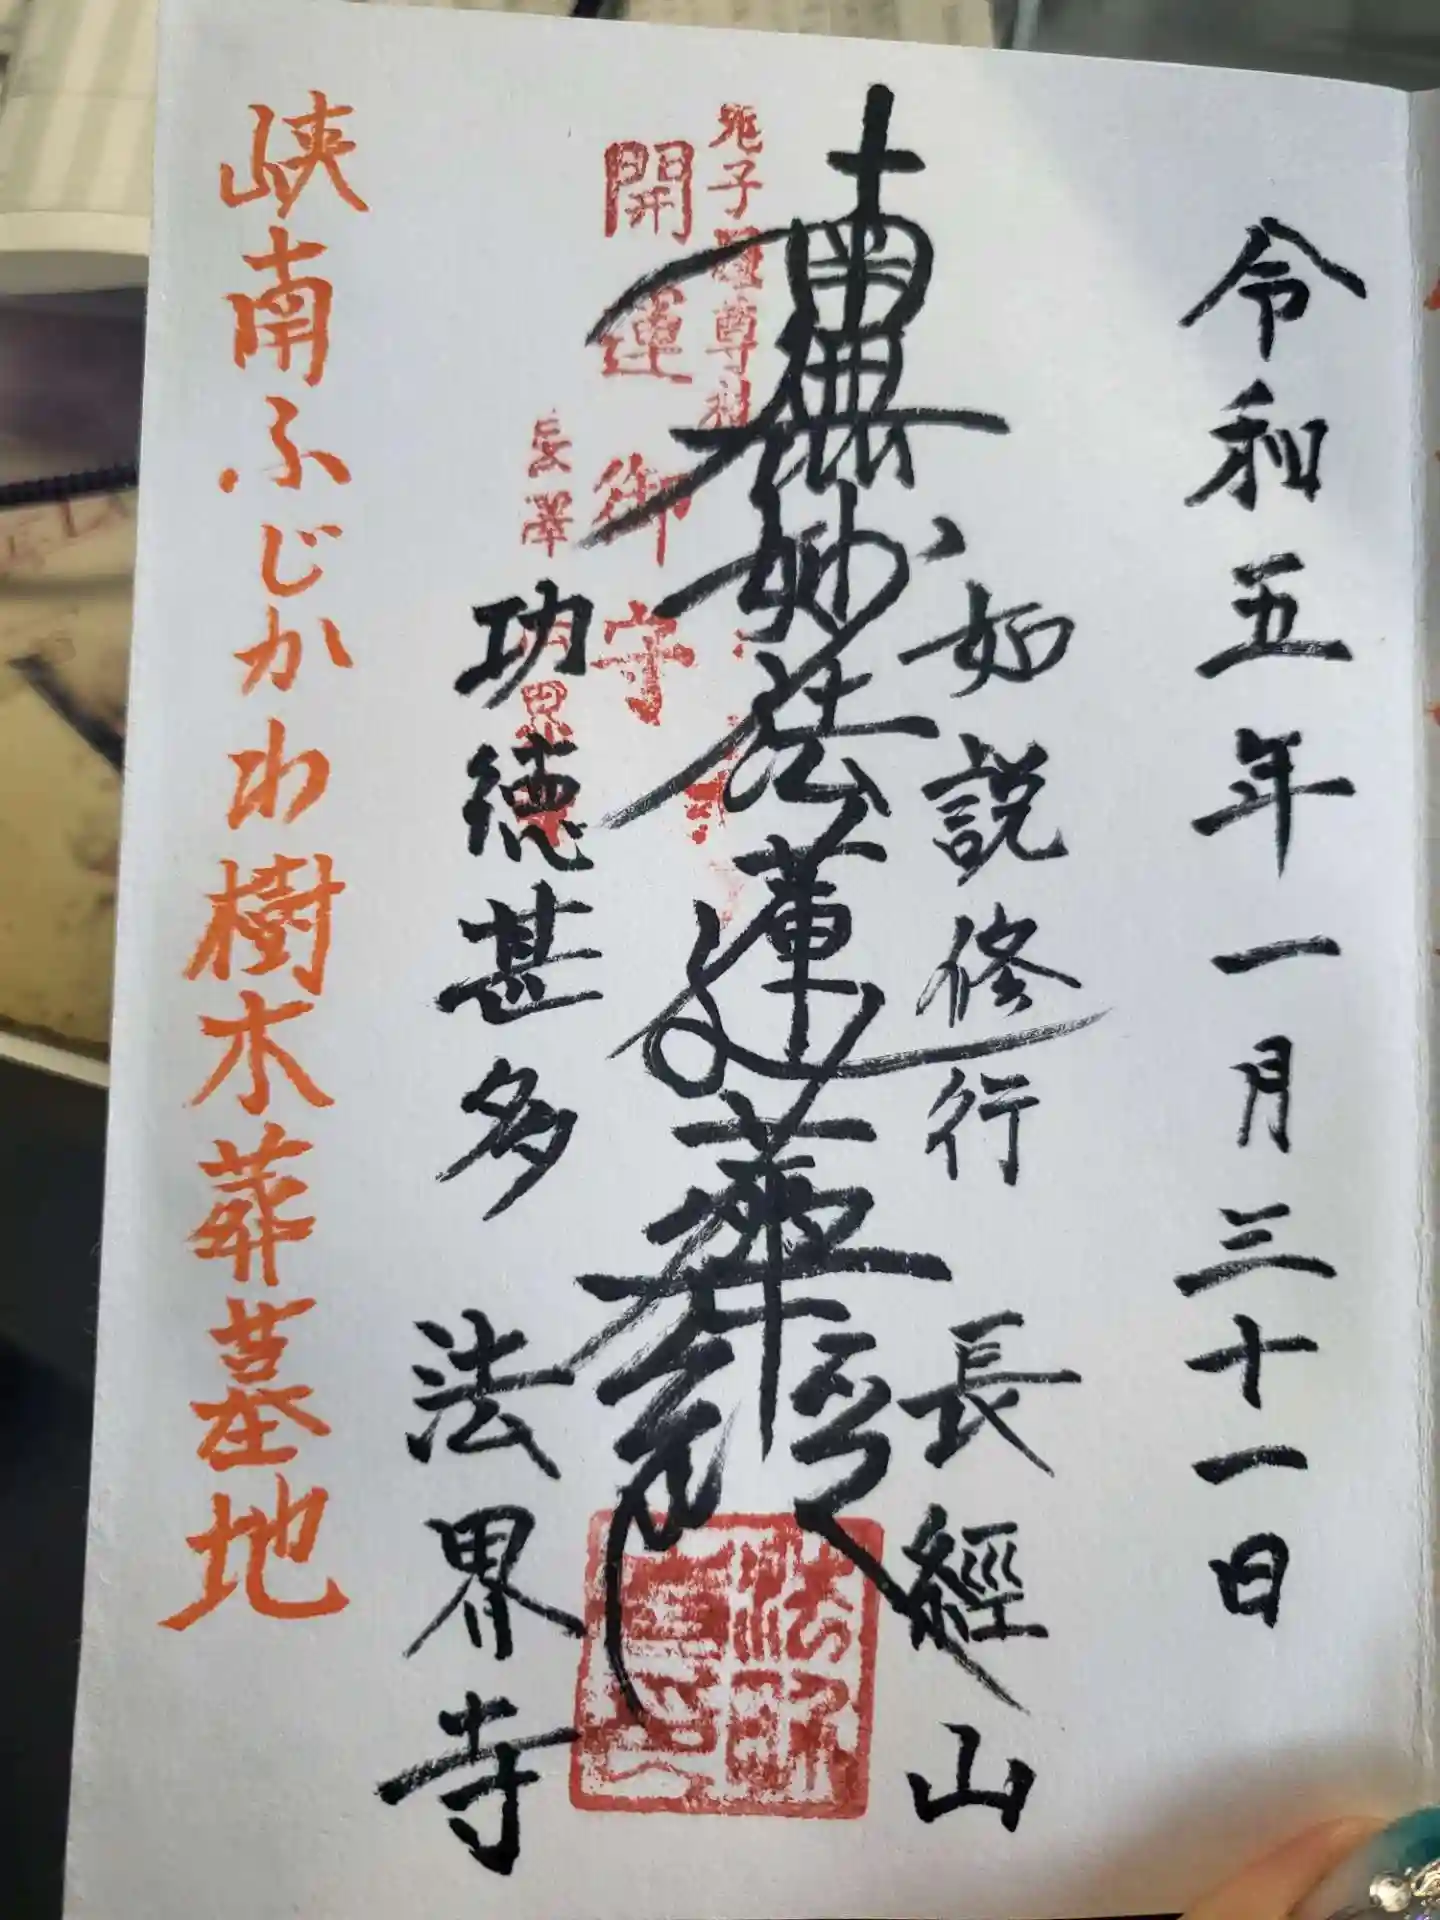 令和五年一月三十一日
如説修行 長經山
南無妙法蓮華経
開運御守
長澤
功徳甚多 法界寺
峡南ふじかわ樹木葬墓地